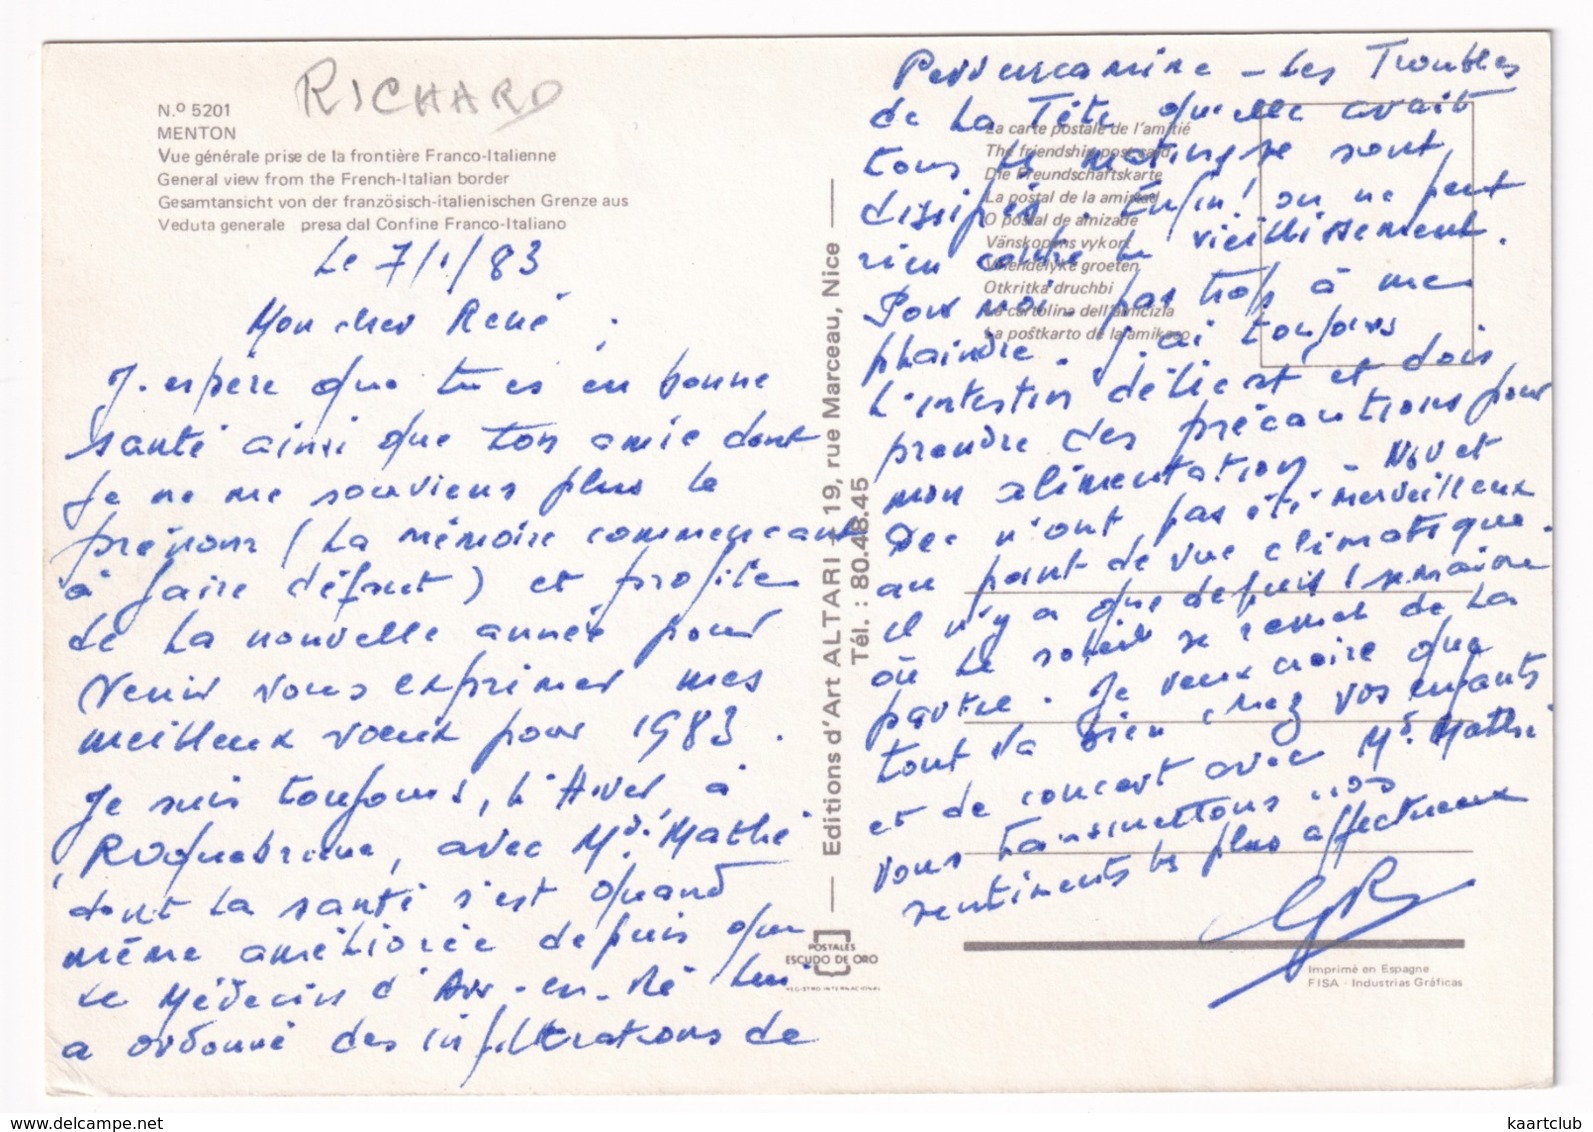 RICHARD
N.º 5201
MENTON
Vue générale prise de la frontière Franco-Italienne
General view from the French-Italian border
Gesamtansicht von der französisch-italienischen Grenze aus
Veduta generale presa dal Confine Franco-Italiano
Le 7/1/83
Mon cher René,
J'espère que tu es en bonne
santé ainsi que ton amie dont
je ne me souviens plus le
prénom (la mémoire commençant
à faire défaut) et profite
de la nouvelle année pour
venir vous exprimer mes
meilleux vœux pour 1983.
Je suis toujours, l'Hiver, à
Roquebrune, avec Md. Mathé
dont la santé s'est quand
même améliorée depuis que
le Médecin d'Ars-en-Ré lui
a ordonné des infiltrations de
Editions d'Art ALTARI - 19, rue Marceau, Nice
Tél. : 80.48.45
POSTALES
ESCUDO DE ORO
REGISTRO INTERNACIONAL
La carte postale de l'amitié
The friendship post card
Die Freundschaftskarte
La postal de la amistad
O postal de amizade
Vänskapens vykort
Vriendelyke groeten
Otkritka druchbi
La cartolina dell'amicizia
La poŝtkarto de la amikeco
Pervencamine - les Troubles
de la Tête qu'elle avait
tous les matins se sont
dissipés. Enfin! on ne peut
rien contre le vieillissement.
Pour moi - pas trop à me
plaindre. J'ai toujours
l'intestin délicat et dois
prendre des précautions pour
mon alimentation - Nov et
Dec n'ont pas été merveilleux
au point de vue climatique.
Il n'y a que depuis 1 semaine
où le soleil se remet de la
partie. Je veux croire que
tout va bien chez vos enfants
et de concert avec Md. Mathé
vous transmettons nos
sentiments les plus affectueux
GR
Imprimé en Espagne
FISA - Industrias Gráficas
www.delcampe.net
kaartclub